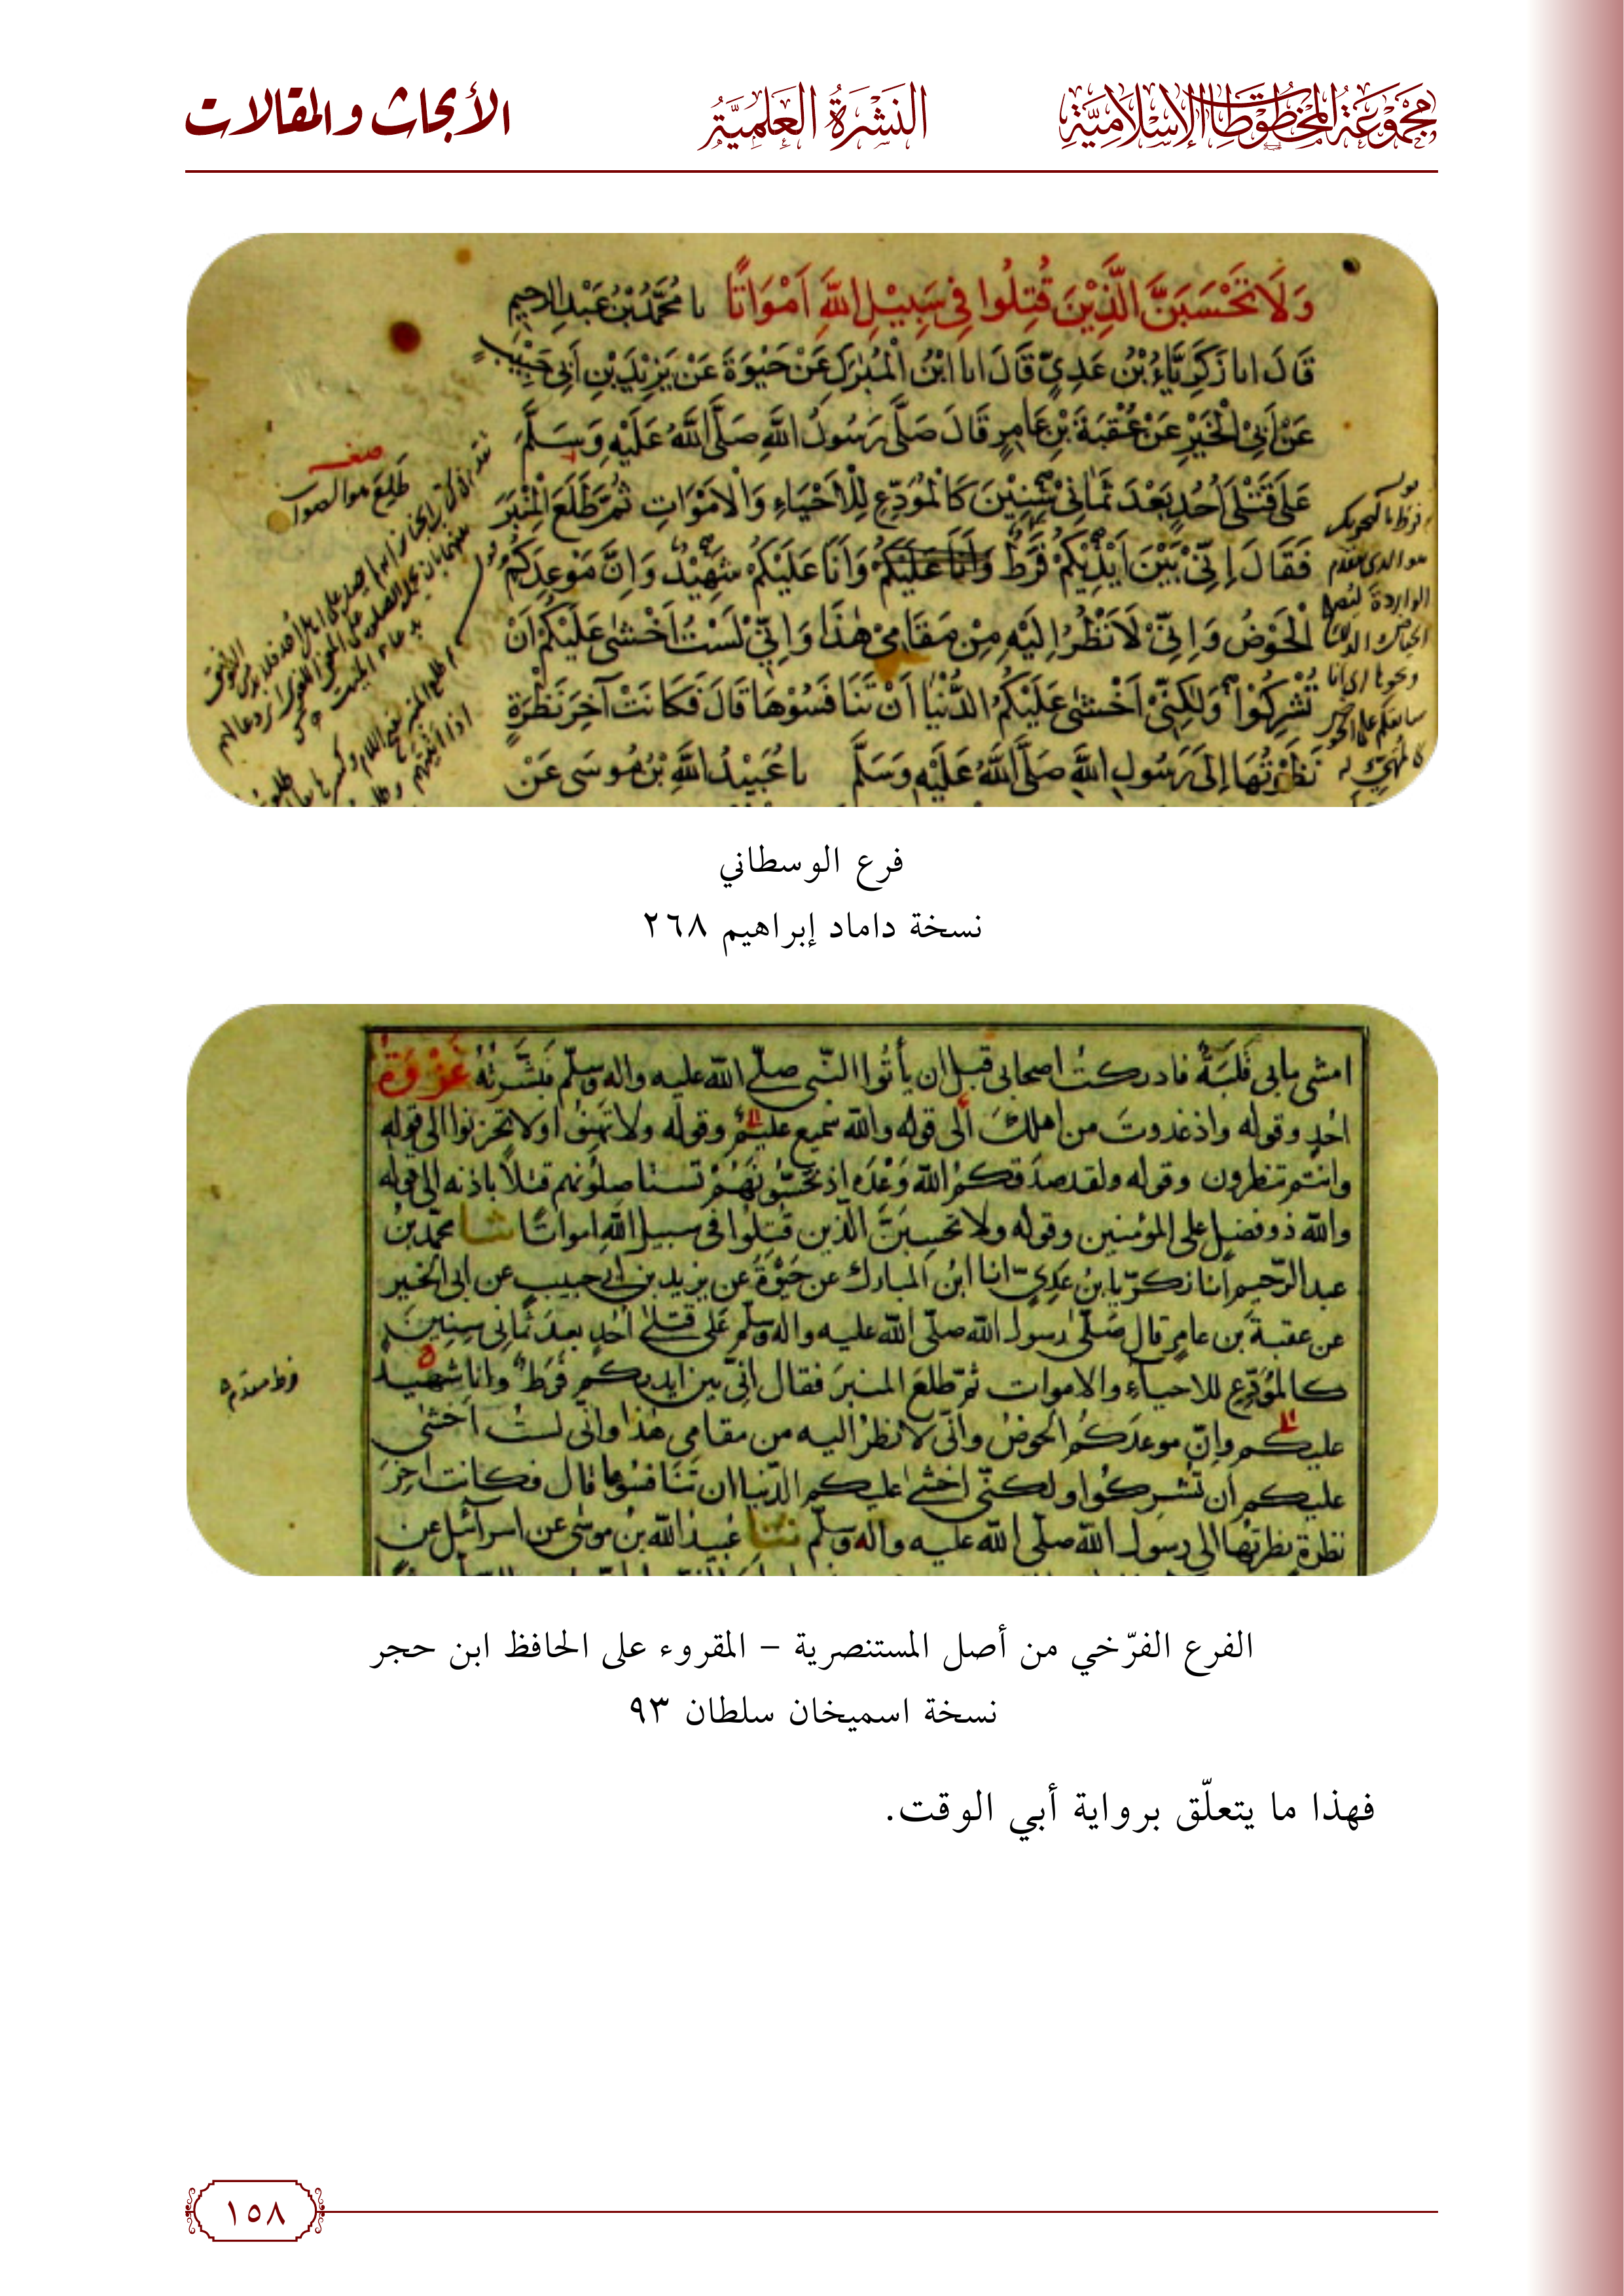 مجموعة المخطوطات الإسلامية
النَّشْرَةُ العِلْمِيَّةُ
الأبحاث والمقالات
وَلَا تَحْسَبَنَّ الَّذِيْنَ قُتِلُوا فِي سَبِيْلِ اللَّهِ اَمْوَاتًا نا مُحَمَّدُ بْنُ عَبْدِ الرحيم
قَالَ انا زَكَرِيَّاءُ بْنُ عَدِيٍّ قَالَ انا ابْنُ الْمُبٰرَكِ عَنْ حَيْوَةَ عَنْ يَزِيْدَ بْنِ اَبِي حَبِيْبٍ
عَنْ اَبِي الْخَيْرِ عَنْ عُقْبَةَ بْنِ عَامِرٍ قَالَ صَلَّى رَسُولُ اللَّهِ صَلَّى اللَّهُ عَلَيْهِ وَسَلَّمَ
عَلَى قَتْلَى اُحُدٍ بَعْدَ ثَمَانِيْ سِنِيْنَ كَالْمُوَدِّعِ لِلْاَحْيَاءِ وَالْاَمْوَاتِ ثُمَّ طَلَعَ الْمِنْبَرَ
فَقَالَ اِنِّيْ بَيْنَ اَيْدِيْكُمْ فَرَطٌ وَاَنَا عَلَيْكُمْ وَاَنَا عَلَيْكُمْ شَهِيْدٌ وَاِنَّ مَوْعِدَكُمُ
الْحَوْضُ وَاِنِّيْ لَاَنْظُرُ اِلَيْهِ مِنْ مَقَامِيْ هٰذَا وَاِنِّيْ لَسْتُ اَخْشٰى عَلَيْكُمْ اَنْ
تُشْرِكُوْا وَلٰكِنِّيْ اَخْشٰى عَلَيْكُمُ الدُّنْيَا اَنْ تَنَافَسُوْهَا قَالَ فَكَانَتْ آخِرَ نَظْرَةٍ
نَظَرْتُهَا اِلَى رَسُولِ اللَّهِ صَلَّى اللَّهُ عَلَيْهِ وَسَلَّمَ نا عُبَيْدُ اللَّهِ بْنُ مُوسَى عَنْ
فرع الوسطاني
نسخة داماد إبراهيم ٢٦٨
امشي مابي قَلَبَةٌ فادركت اصحابي قبل ان يأتوا النّبي صلّى الله عليه واله وسلّم فبشّرته غزوة
احُدٍ وقوله واذ غدوت من اهلك الى قوله والله سميع عليم وقوله ولا تهنوا ولا تحزنوا الى قوله
وانتم تنظرون وقوله ولقد صدقكم الله وَعْدَه اذ تحسّونهم تستاصلونهم قتلًا باذنه الى قوله
والله ذو فضل على المؤمنين وقوله ولا تحسبنّ الّذين قُتِلُوا في سبيل الله امواتًا ثنا محمّد بن
عبد الرّحيم انا زكريّا بن عَدِيّ انا ابن المبارك عن حَيْوَةَ عن يزيد بن ابي حبيب عن ابي الخير
عن عقبة بن عامر قال صَلّى رسول الله صلّى الله عليه واله وسلّم على قتلى اُحُد بعد ثماني سِنين
كالمُوَدّع للاحياء والاموات ثمّ طلع المنبر فقال انّي بين ايديكم فَرَط وانا شهيد
عليكم وانّ موعدكم الحوض وانّي لانظر اليه من مقامي هٰذا وانّي لستُ اخشٰى
عليكم ان تُشركوا ولكنّي اخشى عليكم الدّنيا ان تَنَافسُوها قال فكانت اٰخِرَ
نظرة نظرتها الى رسول الله صلّى الله عليه واله وسلّم ثنا عُبيد الله بن موسى عن اسرآئيل عن
الفرع الفرّخي من أصل المستنصرية – المقروء على الحافظ ابن حجر
نسخة اسميخان سلطان ٩٣
فهذا ما يتعلّق برواية أبي الوقت.
١٥٨